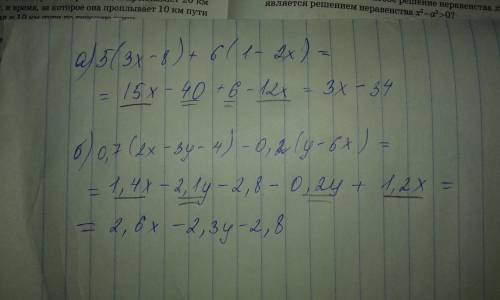 проплывает 20 км
, и время, за которое она проплывает 10 км пути
решение неравенства x
является решением неравенства x²−a²>0?
а) 5(3x-8)+6(1-2x)=
= 15x-40+6-12x=3x-34
б) 0,7(2x-3y-4)-0,2(y-6x)=
= 1,4x-2,1y-2,8-0,2y+1,2x=
= 2,6x-2,3y-2,8